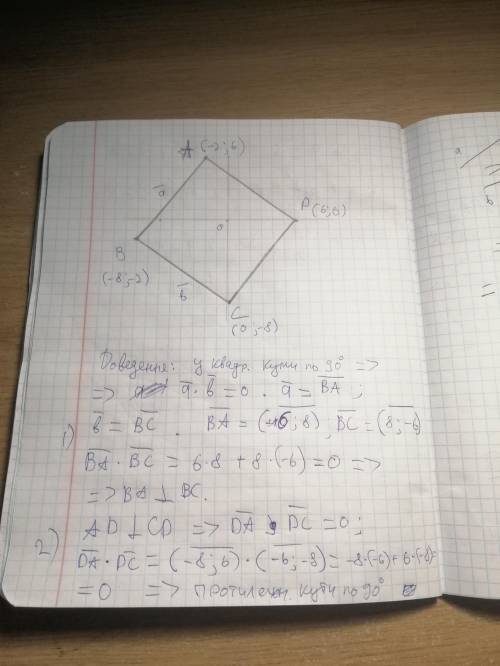 A (-2; 6)
a
D (6; 0)
o
B
(-8; -2)
b
C
(0; -8)
Доведення: у квадр. кути по 90° =>
=> a · b = 0. a = BA;
1) b = BC. BA = (6; 8), BC = (8; -6)
BA · BC = 6·8 + 8·(-6) = 0 =>
=> BA ⊥ BC.
2) AD ⊥ CD => DA · DC = 0;
DA · DC = (-8; 6) · (-6; -8) = -8·(-6) + 6·(-8) =
= 0 => протилежн. кути по 90°
a
b
=